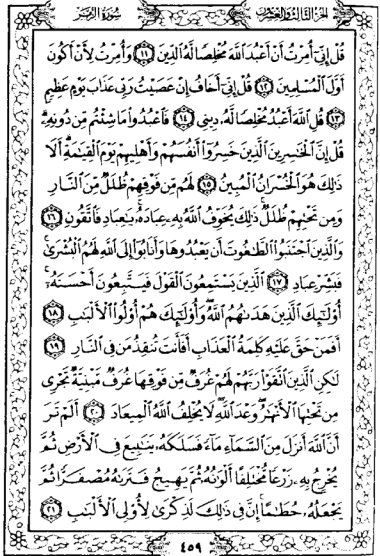 الجزء الثالث والعشرون سورة الزمر
قُلْ إِنِّىٓ أُمِرْتُ أَنْ أَعْبُدَ ٱللَّهَ مُخْلِصًا لَّهُ ٱلدِّينَ ١١ وَأُمِرْتُ لِأَنْ أَكُونَ
أَوَّلَ ٱلْمُسْلِمِينَ ١٢ قُلْ إِنِّىٓ أَخَافُ إِنْ عَصَيْتُ رَبِّى عَذَابَ يَوْمٍ عَظِيمٍ
١٣ قُلِ ٱللَّهَ أَعْبُدُ مُخْلِصًا لَّهُۥ دِينِى ١٤ فَٱعْبُدُوا۟ مَا شِئْتُم مِّن دُونِهِۦ
قُلْ إِنَّ ٱلْخَٰسِرِينَ ٱلَّذِينَ خَسِرُوٓا۟ أَنفُسَهُمْ وَأَهْلِيهِمْ يَوْمَ ٱلْقِيَٰمَةِ أَلَا
ذَٰلِكَ هُوَ ٱلْخُسْرَانُ ٱلْمُبِينُ ١٥ لَهُم مِّن فَوْقِهِمْ ظُلَلٌ مِّنَ ٱلنَّارِ
وَمِن تَحْتِهِمْ ظُلَلٌ ذَٰلِكَ يُخَوِّفُ ٱللَّهُ بِهِۦ عِبَادَهُۥ يَٰعِبَادِ فَٱتَّقُونِ ١٦
وَٱلَّذِينَ ٱجْتَنَبُوا۟ ٱلطَّٰغُوتَ أَن يَعْبُدُوهَا وَأَنَابُوٓا۟ إِلَى ٱللَّهِ لَهُمُ ٱلْبُشْرَىٰ
فَبَشِّرْ عِبَادِ ١٧ ٱلَّذِينَ يَسْتَمِعُونَ ٱلْقَوْلَ فَيَتَّبِعُونَ أَحْسَنَهُۥٓ
أُو۟لَٰٓئِكَ ٱلَّذِينَ هَدَىٰهُمُ ٱللَّهُ وَأُو۟لَٰٓئِكَ هُمْ أُو۟لُوا۟ ٱلْأَلْبَٰبِ ١٨
أَفَمَنْ حَقَّ عَلَيْهِ كَلِمَةُ ٱلْعَذَابِ أَفَأَنتَ تُنقِذُ مَن فِى ٱلنَّارِ ١٩
لَٰكِنِ ٱلَّذِينَ ٱتَّقَوْا۟ رَبَّهُمْ لَهُمْ غُرَفٌ مِّن فَوْقِهَا غُرَفٌ مَّبْنِيَّةٌ تَجْرِى
مِن تَحْتِهَا ٱلْأَنْهَٰرُ وَعْدَ ٱللَّهِ لَا يُخْلِفُ ٱللَّهُ ٱلْمِيعَادَ ٢٠ أَلَمْ تَرَ
أَنَّ ٱللَّهَ أَنزَلَ مِنَ ٱلسَّمَآءِ مَآءً فَسَلَكَهُۥ يَنَٰبِيعَ فِى ٱلْأَرْضِ ثُمَّ
يُخْرِجُ بِهِۦ زَرْعًا مُّخْتَلِفًا أَلْوَٰنُهُۥ ثُمَّ يَهِيجُ فَتَرَىٰهُ مُصْفَرًّا ثُمَّ
يَجْعَلُهُۥ حُطَٰمًا إِنَّ فِى ذَٰلِكَ لَذِكْرَىٰ لِأُو۟لِى ٱلْأَلْبَٰبِ ٢١
٤٥٩